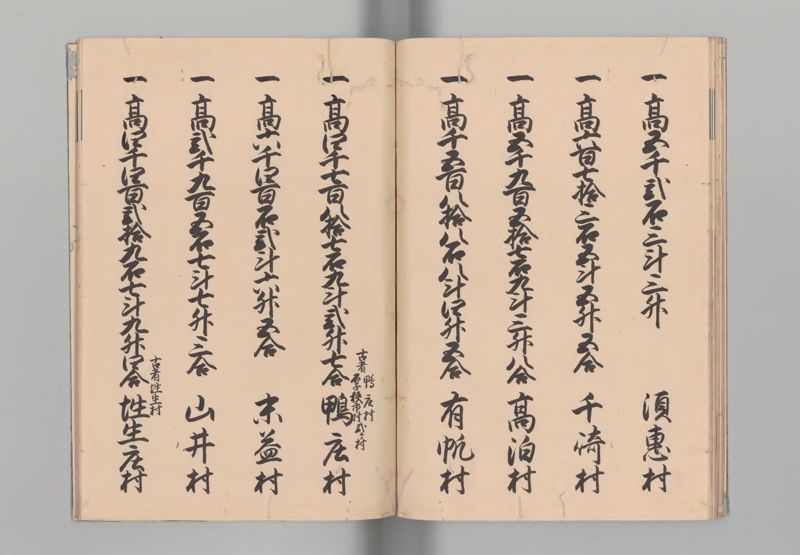 一 高五千弐石二斗二升 須惠村
一 高六百七拾二石五斗五升五合 千崎村
一 高五千九百五拾七石九斗二升八合 高泊村
一 高千五百八拾八石八斗四升五合 有帆村
一 高四千七百八拾七石九斗弐升七合 鴨庄村
古者鴨庄村
一 高六千四百石弐斗六升五合 末益村
一 高弐千九百五石七斗七升二合 山井村
一 高四千四百弐拾九石七斗九升四合 埴生庄村
古者埴生村